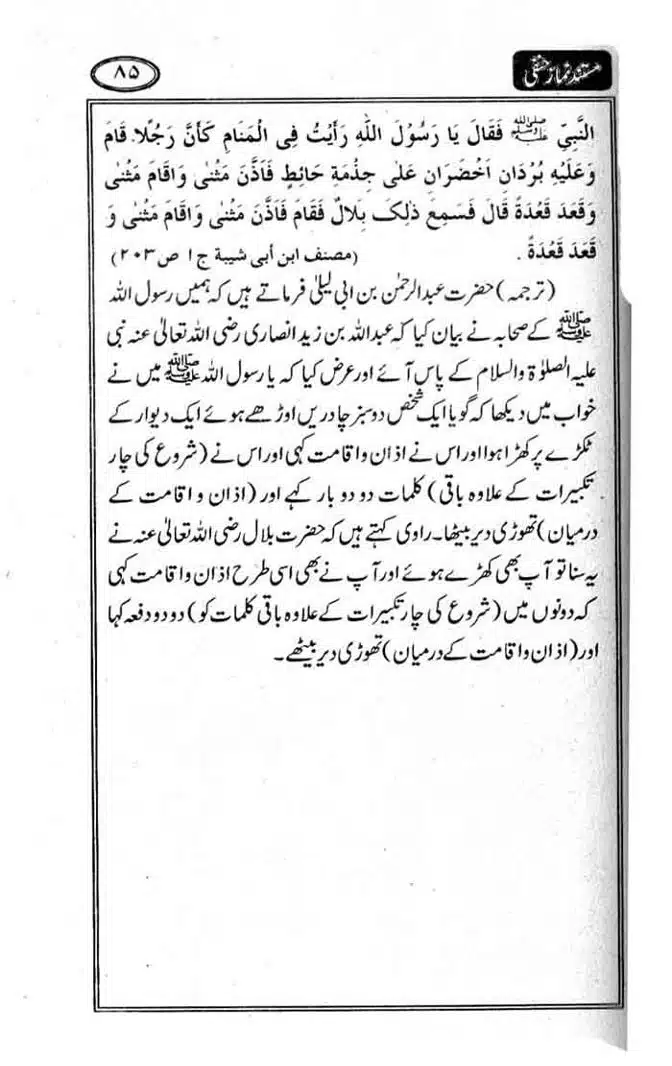 مستند نماز حنفی
۸۵
النَّبِيِّ ﷺ فَقَالَ يَا رَسُوْلَ اللّٰهِ رَأَيْتُ فِى الْمَنَامِ كَأَنَّ رَجُلًا. قَامَ
وَعَلَيْهِ بُرْدَانِ اَخْضَرَانِ عَلٰى جِذْمَةِ حَائِطٍ فَاَذَّنَ مَثْنٰى وَاَقَامَ مَثْنٰى
وَقَعَدَ قَعْدَةً قَالَ فَسَمِعَ ذٰلِكَ بِلَالٌ فَقَامَ فَاَذَّنَ مَثْنٰى وَاَقَامَ مَثْنٰى وَ
قَعَدَ قَعْدَةً . (مصنف ابن أبی شیبة ج ۱ ص ۲۰۳)
(ترجمہ) حضرت عبدالرحمٰن بن ابی لیلیٰ فرماتے ہیں کہ ہمیں رسول اللہ
ﷺ کے صحابہ نے بیان کیا کہ عبداللہ بن زید انصاری رضی اللہ تعالیٰ عنہ نبی
علیہ الصلوٰۃ والسلام کے پاس آئے اور عرض کیا کہ یا رسول اللہ ﷺ میں نے
خواب میں دیکھا کہ گویا ایک شخص دو سبز چادریں اوڑھے ہوئے ایک دیوار کے
ٹکڑے پر کھڑا ہوا اور اس نے اذان و اقامت کہی اور اس نے (شروع کی چار
تکبیرات کے علاوہ باقی) کلمات دو دو بار کہے اور (اذان و اقامت کے
درمیان) تھوڑی دیر بیٹھا۔ راوی کہتے ہیں کہ حضرت بلال رضی اللہ تعالیٰ عنہ نے
یہ سنا تو آپ بھی کھڑے ہوئے اور آپ نے بھی اسی طرح اذان و اقامت کہی
کہ دونوں میں (شروع کی چار تکبیرات کے علاوہ باقی کلمات کو) دو دو دفعہ کہا
اور (اذان و اقامت کے درمیان) تھوڑی دیر بیٹھے۔